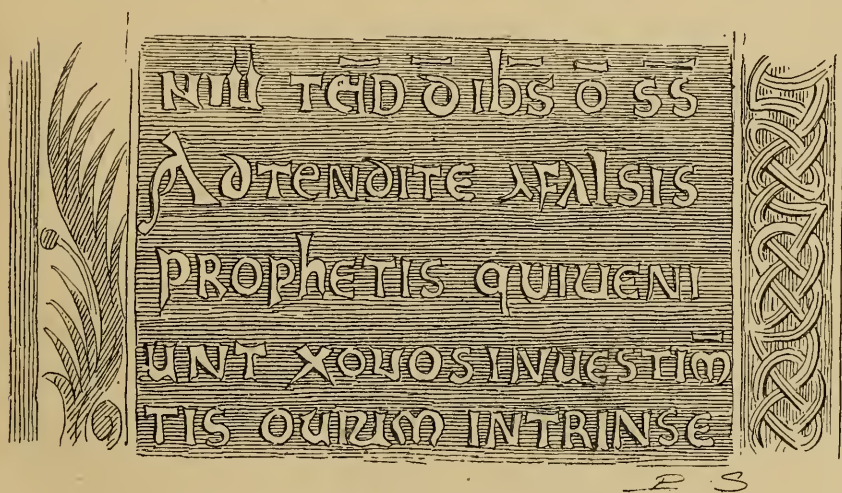 NIŪ TĒD D̄ IBS Ō S̄S̄
ADTENDITE AFALSIS
PROPhETIS QUIUENI
UNT XOUOSINUESTIM̄
TIS OUIUM INTRINSE